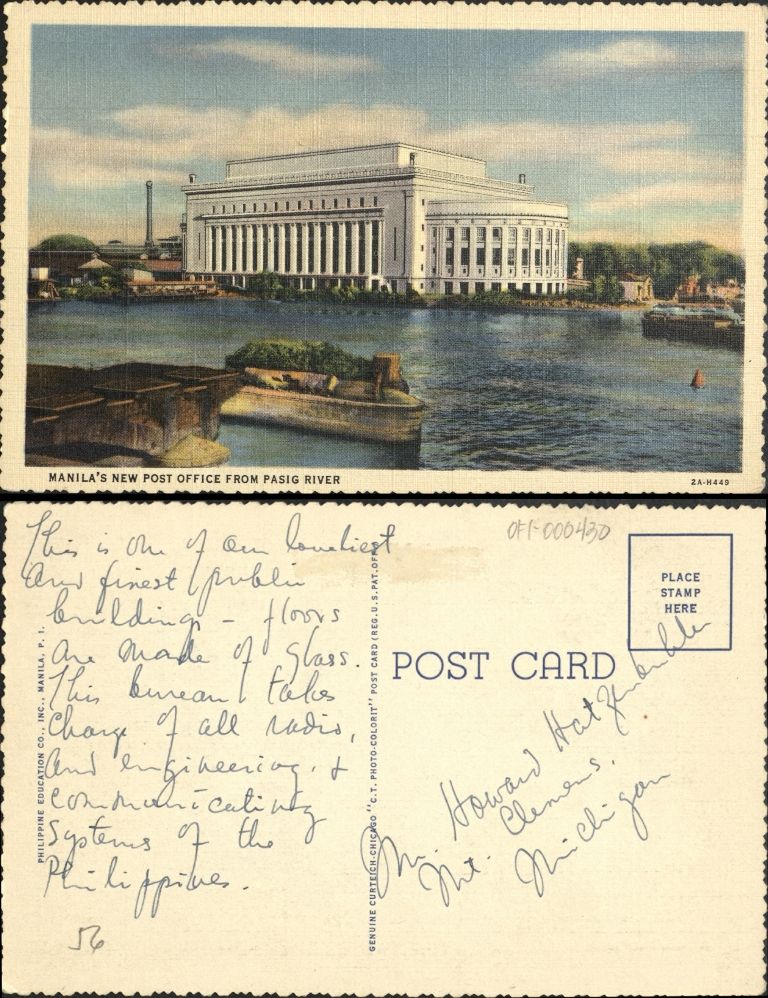 MANILA'S NEW POST OFFICE FROM PASIG RIVER
2A-H449
This is one of our loveliest
and finest public
buildings - floors
are made of glass.
This bureau takes
charge of all radio,
and engineering, &
communicating
systems of the
Philippines.
56
PHILIPPINE EDUCATION CO., INC., MANILA, P. I.
GENUINE CURTEICH-CHICAGO "C.T. PHOTO-COLORIT" POST CARD (REG. U.S. PAT. OFF.
OFF-000430
PLACE
STAMP
HERE
POST CARD
Mr. Howard
Mt. Clemens,
Michigan